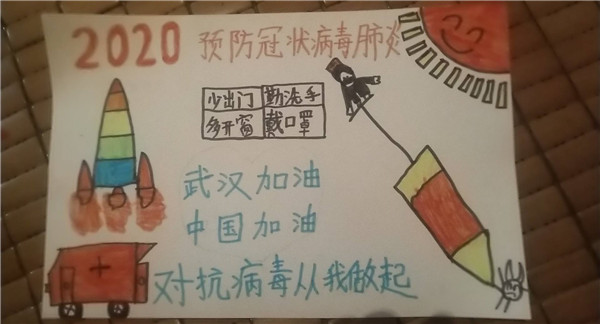 2020 预防冠状病毒肺炎
少出门 勤洗手
多开窗 戴口罩
武汉加油
中国加油
对抗病毒从我做起